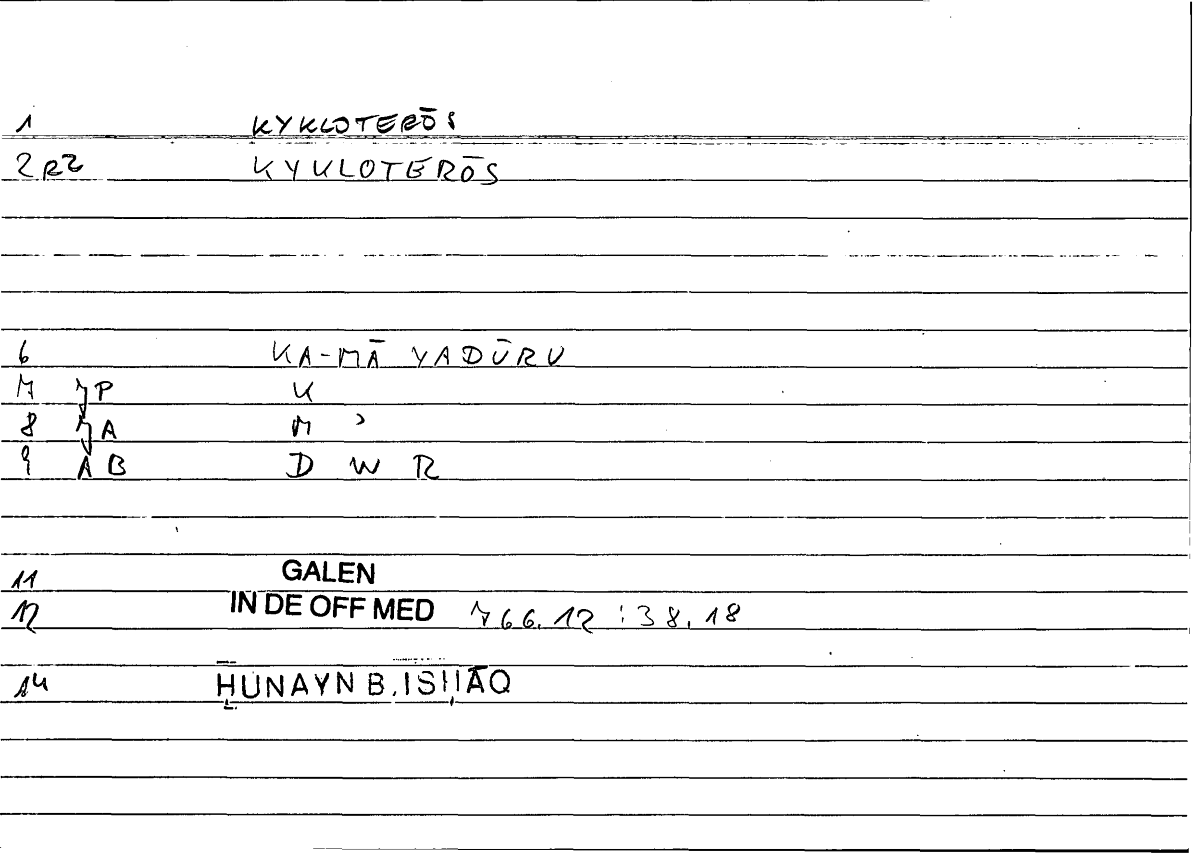 1 KYKLOTERŌS
2RZ KYKLOTERŌS
6 KA-MĀ YADŪRU
7 JP K
8 JA M ʾ
9 AB D W R
11 GALEN
12 IN DE OFF MED 766.12 : 38.18
14 ḤUNAYN B. ISḤĀQ